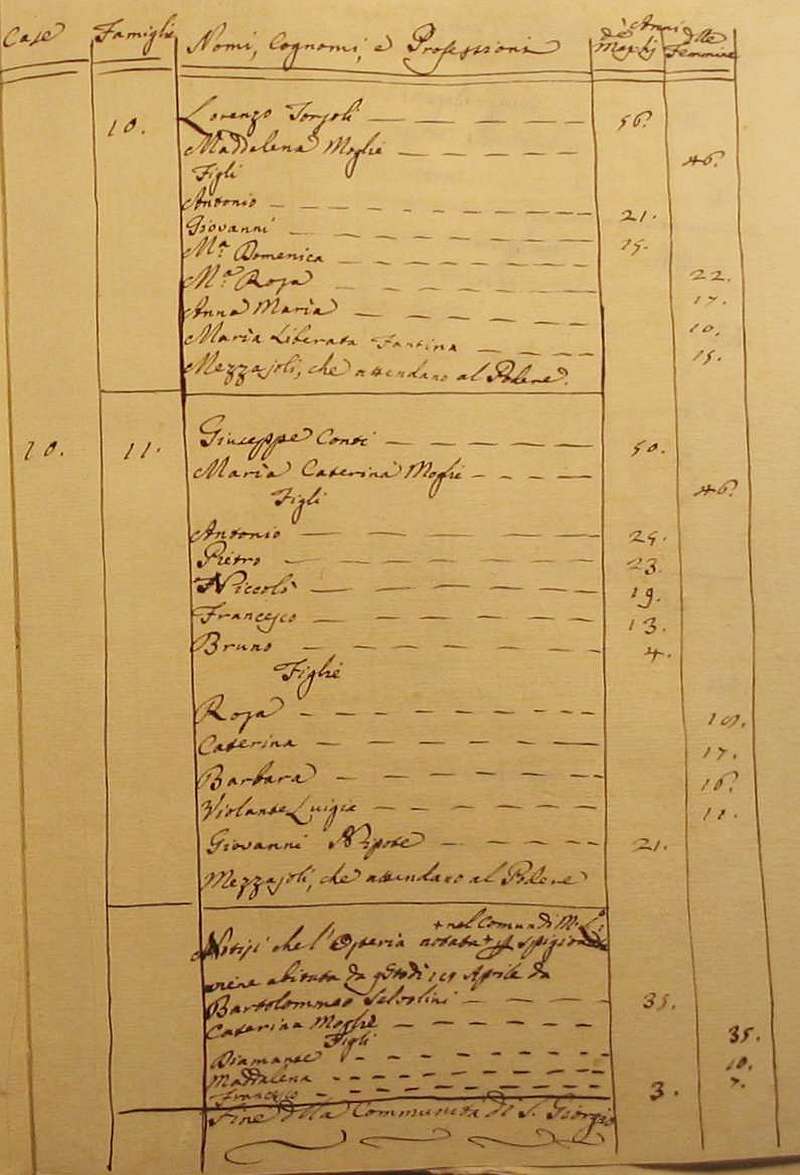 Case Famiglie Nomi, Cognomi, e Professioni Anni de Maschj delle Femmine
10. Lorenzo Torsoli 56.
Maddalena Moglie 46.
Figli
Antonio 21.
Giovanni 15.
M.a Domenica 22.
M.a Rosa 17.
Anna Maria 10.
Maria Liberata Fantina 15.
Mezzajoli, che attendano al Podere.
10. 11. Giuseppe Conti 50.
Maria Caterina Moglie 46.
Figli
Antonio 25.
Pietro 23.
Niccolò 19.
Francesco 13.
Bruno 4.
Figlie
Rosa 19.
Caterina 17.
Barbara 16.
Violante Luigia 11.
Giovanni Nipote 21.
Mezzajoli, che attendano al Podere
+ nel Comun di M.
Notisi che l'Osteria notata +
viene abitata da Aprile da
Bartolommeo Selvolini 35.
Caterina Moglie 35.
Figli
Diamante 10.
Maddalena 7.
Francesco 3.
Fine della Communità di S. Giorgio